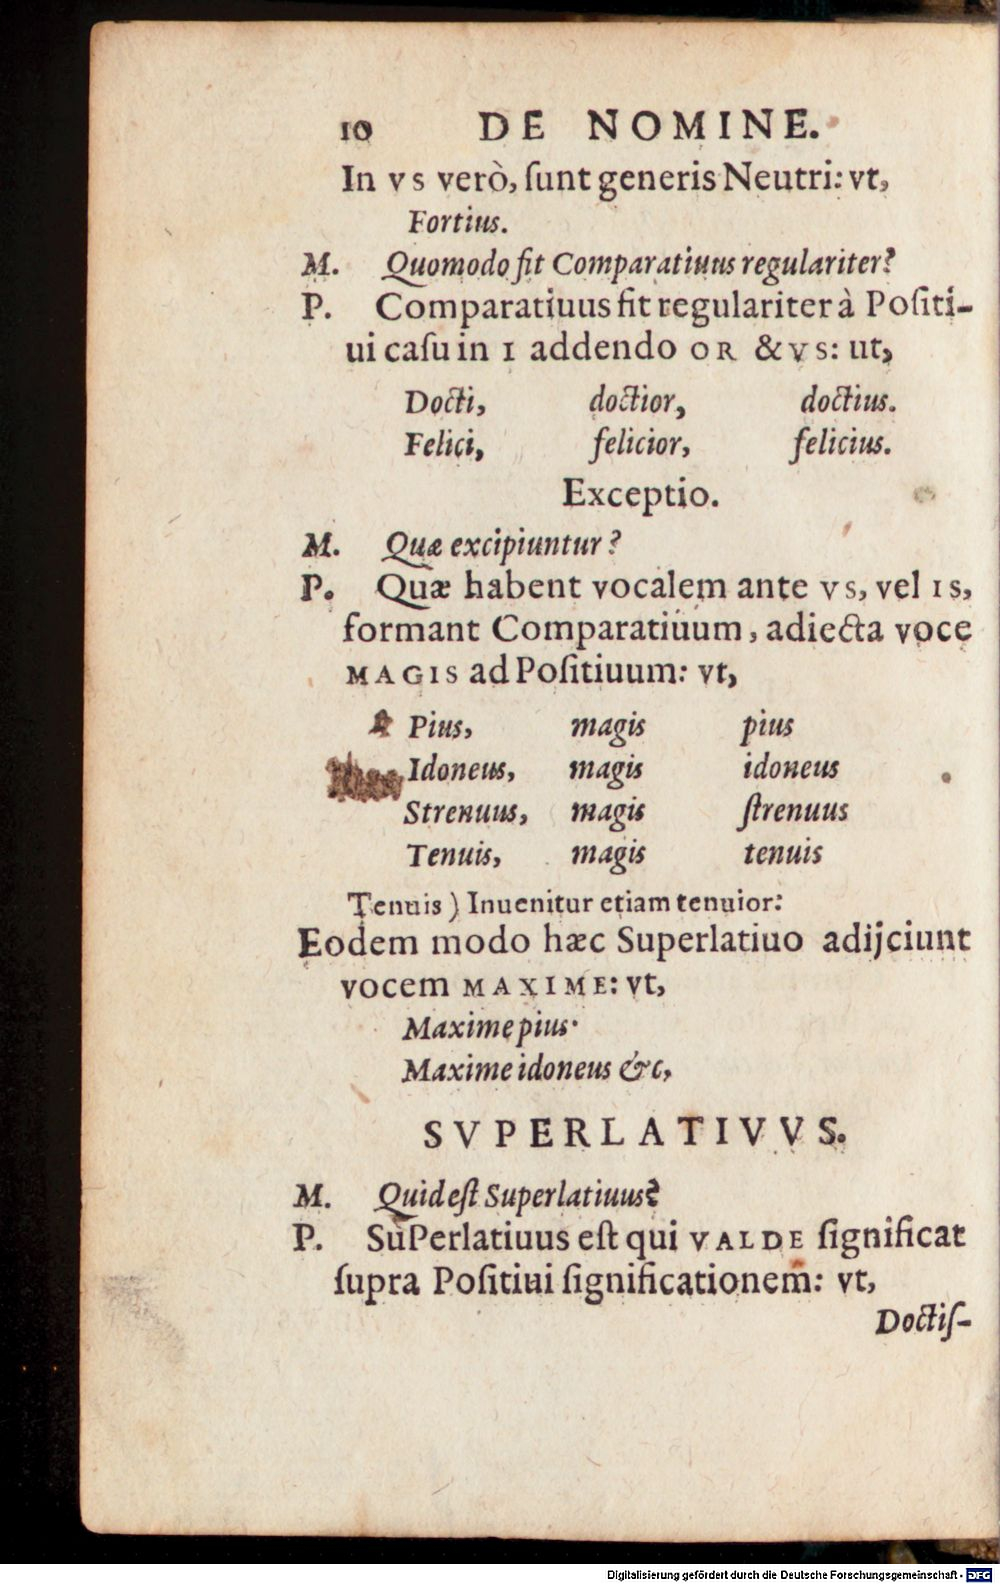 10 DE NOMINE.
In vs verò, ſunt generis Neutri: vt,
Fortius.
M. Quomodo fit Comparatiuus regulariter?
P. Comparatiuus fit regulariter à Poſiti-
ui caſu in I addendo OR & VS: ut,
Docti, doctior, doctius.
Felici, felicior, felicius.
Exceptio.
M. Quæ excipiuntur?
P. Quæ habent vocalem ante VS, vel IS,
formant Comparatiuum, adiecta voce
MAGIS ad Poſitiuum: vt,
Pius, magis pius
Idoneus, magis idoneus
Strenuus, magis ſtrenuus
Tenuis, magis tenuis
Tenuis) Inuenitur etiam tenuior:
Eodem modo hæc Superlatiuo adijciunt
vocem MAXIME: vt,
Maxime pius·
Maxime idoneus &c,
SVPERLATIVVS.
M. Quid eſt Superlatiuus?
P. SuPerlatiuus eſt qui VALDE ſignificat
ſupra Poſitiui ſignificationem: vt,
Doctiſ-
Digitalisierung gefördert durch die Deutsche Forschungsgemeinschaft - DFG